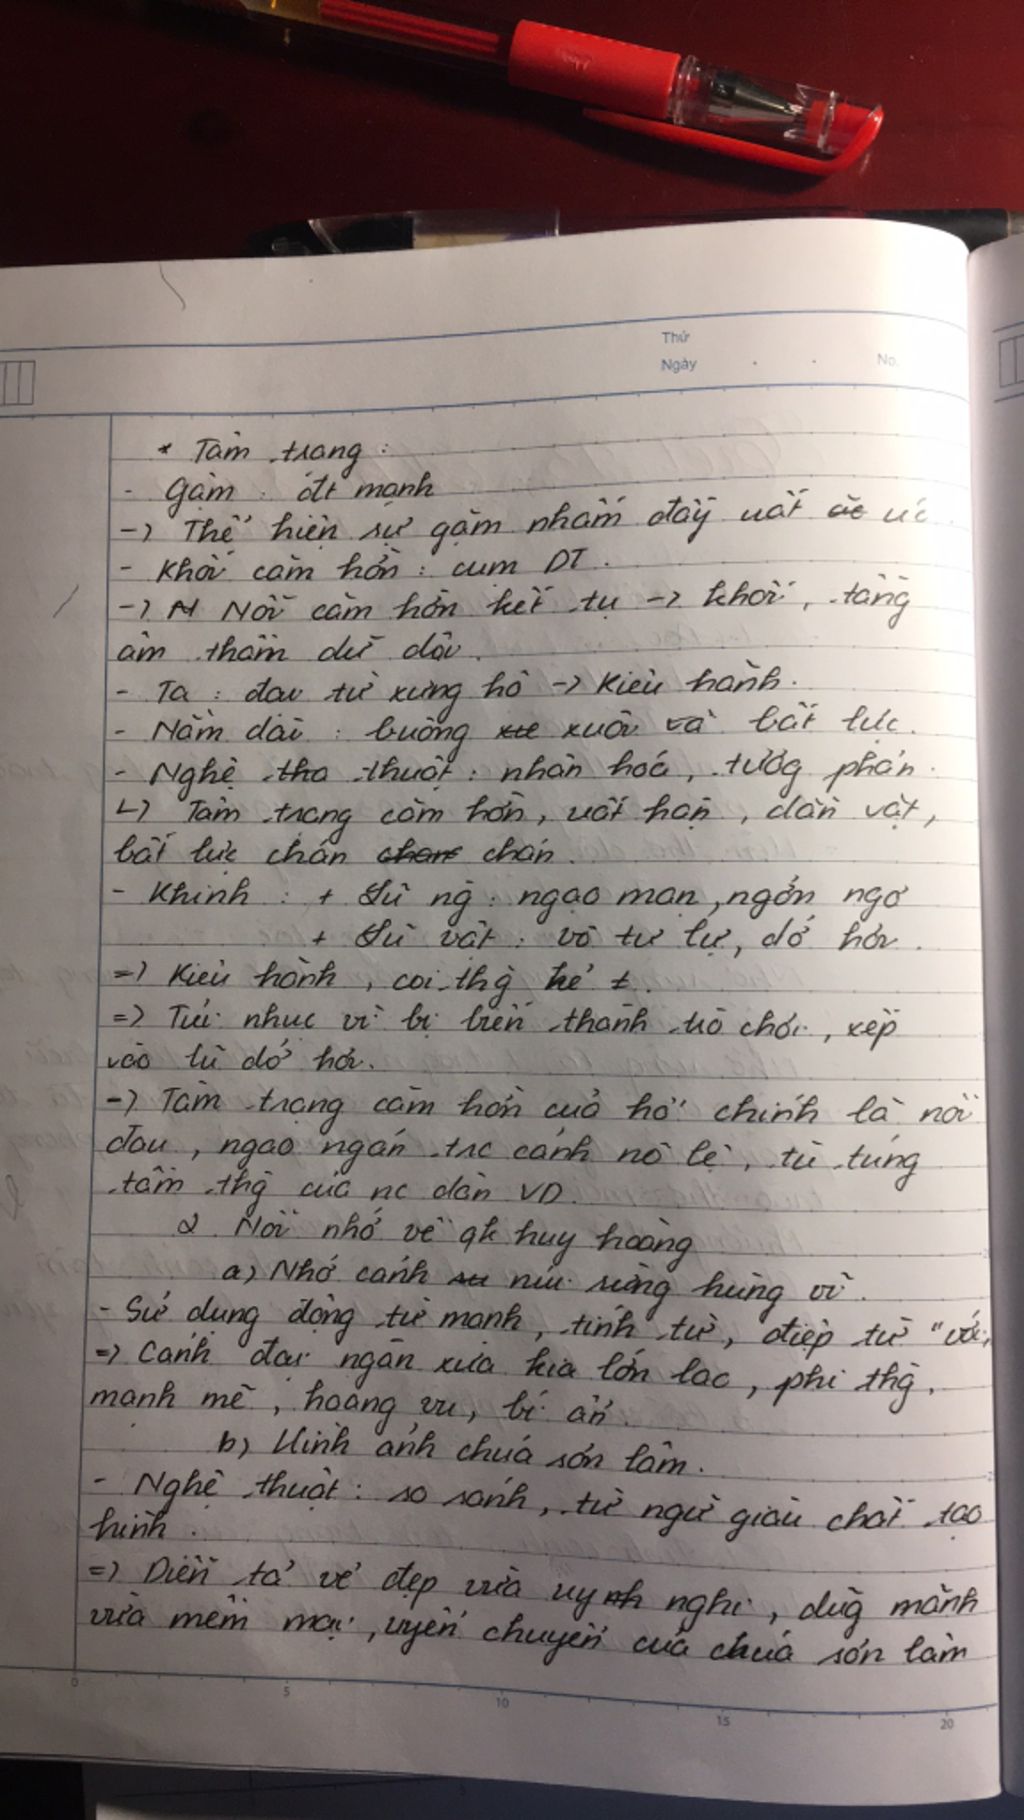 Thứ
Ngày . . No.
* Tâm trạng :
- Gậm : đt mạnh
-> Thể hiện sự gặm nhấm đầy uất ức.
- Khối căm hờn : cụm DT.
-> Nỗi căm hờn kết tụ -> khối, tảng
âm thầm dữ dội.
- Ta : đại từ xưng hô -> Kiêu hãnh.
- Nằm dài : buông xuôi và bất lực.
- Nghệ thuật : nhân hoá, tương phản.
↳ Tâm trạng căm hờn, uất hận, dằn vặt,
bất lực chán chán.
- Khinh : + Lũ ng : ngạo mạn, ngẩn ngơ
+ Lũ vật : vô tư lự, dở hơi.
=> Kiêu hãnh, coi thg kẻ ≠.
=> Tủi nhục vì bị biến thành trò chơi, xếp
vào lũ dở hơi.
-> Tâm trạng căm hờn của hổ chính là nỗi
đau, ngao ngán trc cảnh nô lệ, tù túng
tầm thg của nc dân VD.
2. Nỗi nhớ về qk huy hoàng
a) Nhớ cảnh núi rừng hùng vĩ.
- Sử dụng động từ mạnh, tính từ, điệp từ "với,
=> Cảnh đại ngàn xưa kia lớn lao, phi thg,
mạnh mẽ, hoang vu, bí ẩn.
b) Hình ảnh chúa sơn lâm.
- Nghệ thuật : so sánh, từ ngữ giàu chất tạo
hình.
=> Diễn tả vẻ đẹp vừa uy nghi, dũg mãnh
vừa mềm mại, uyển chuyển của chúa sơn lâm
0 5 10 15 20